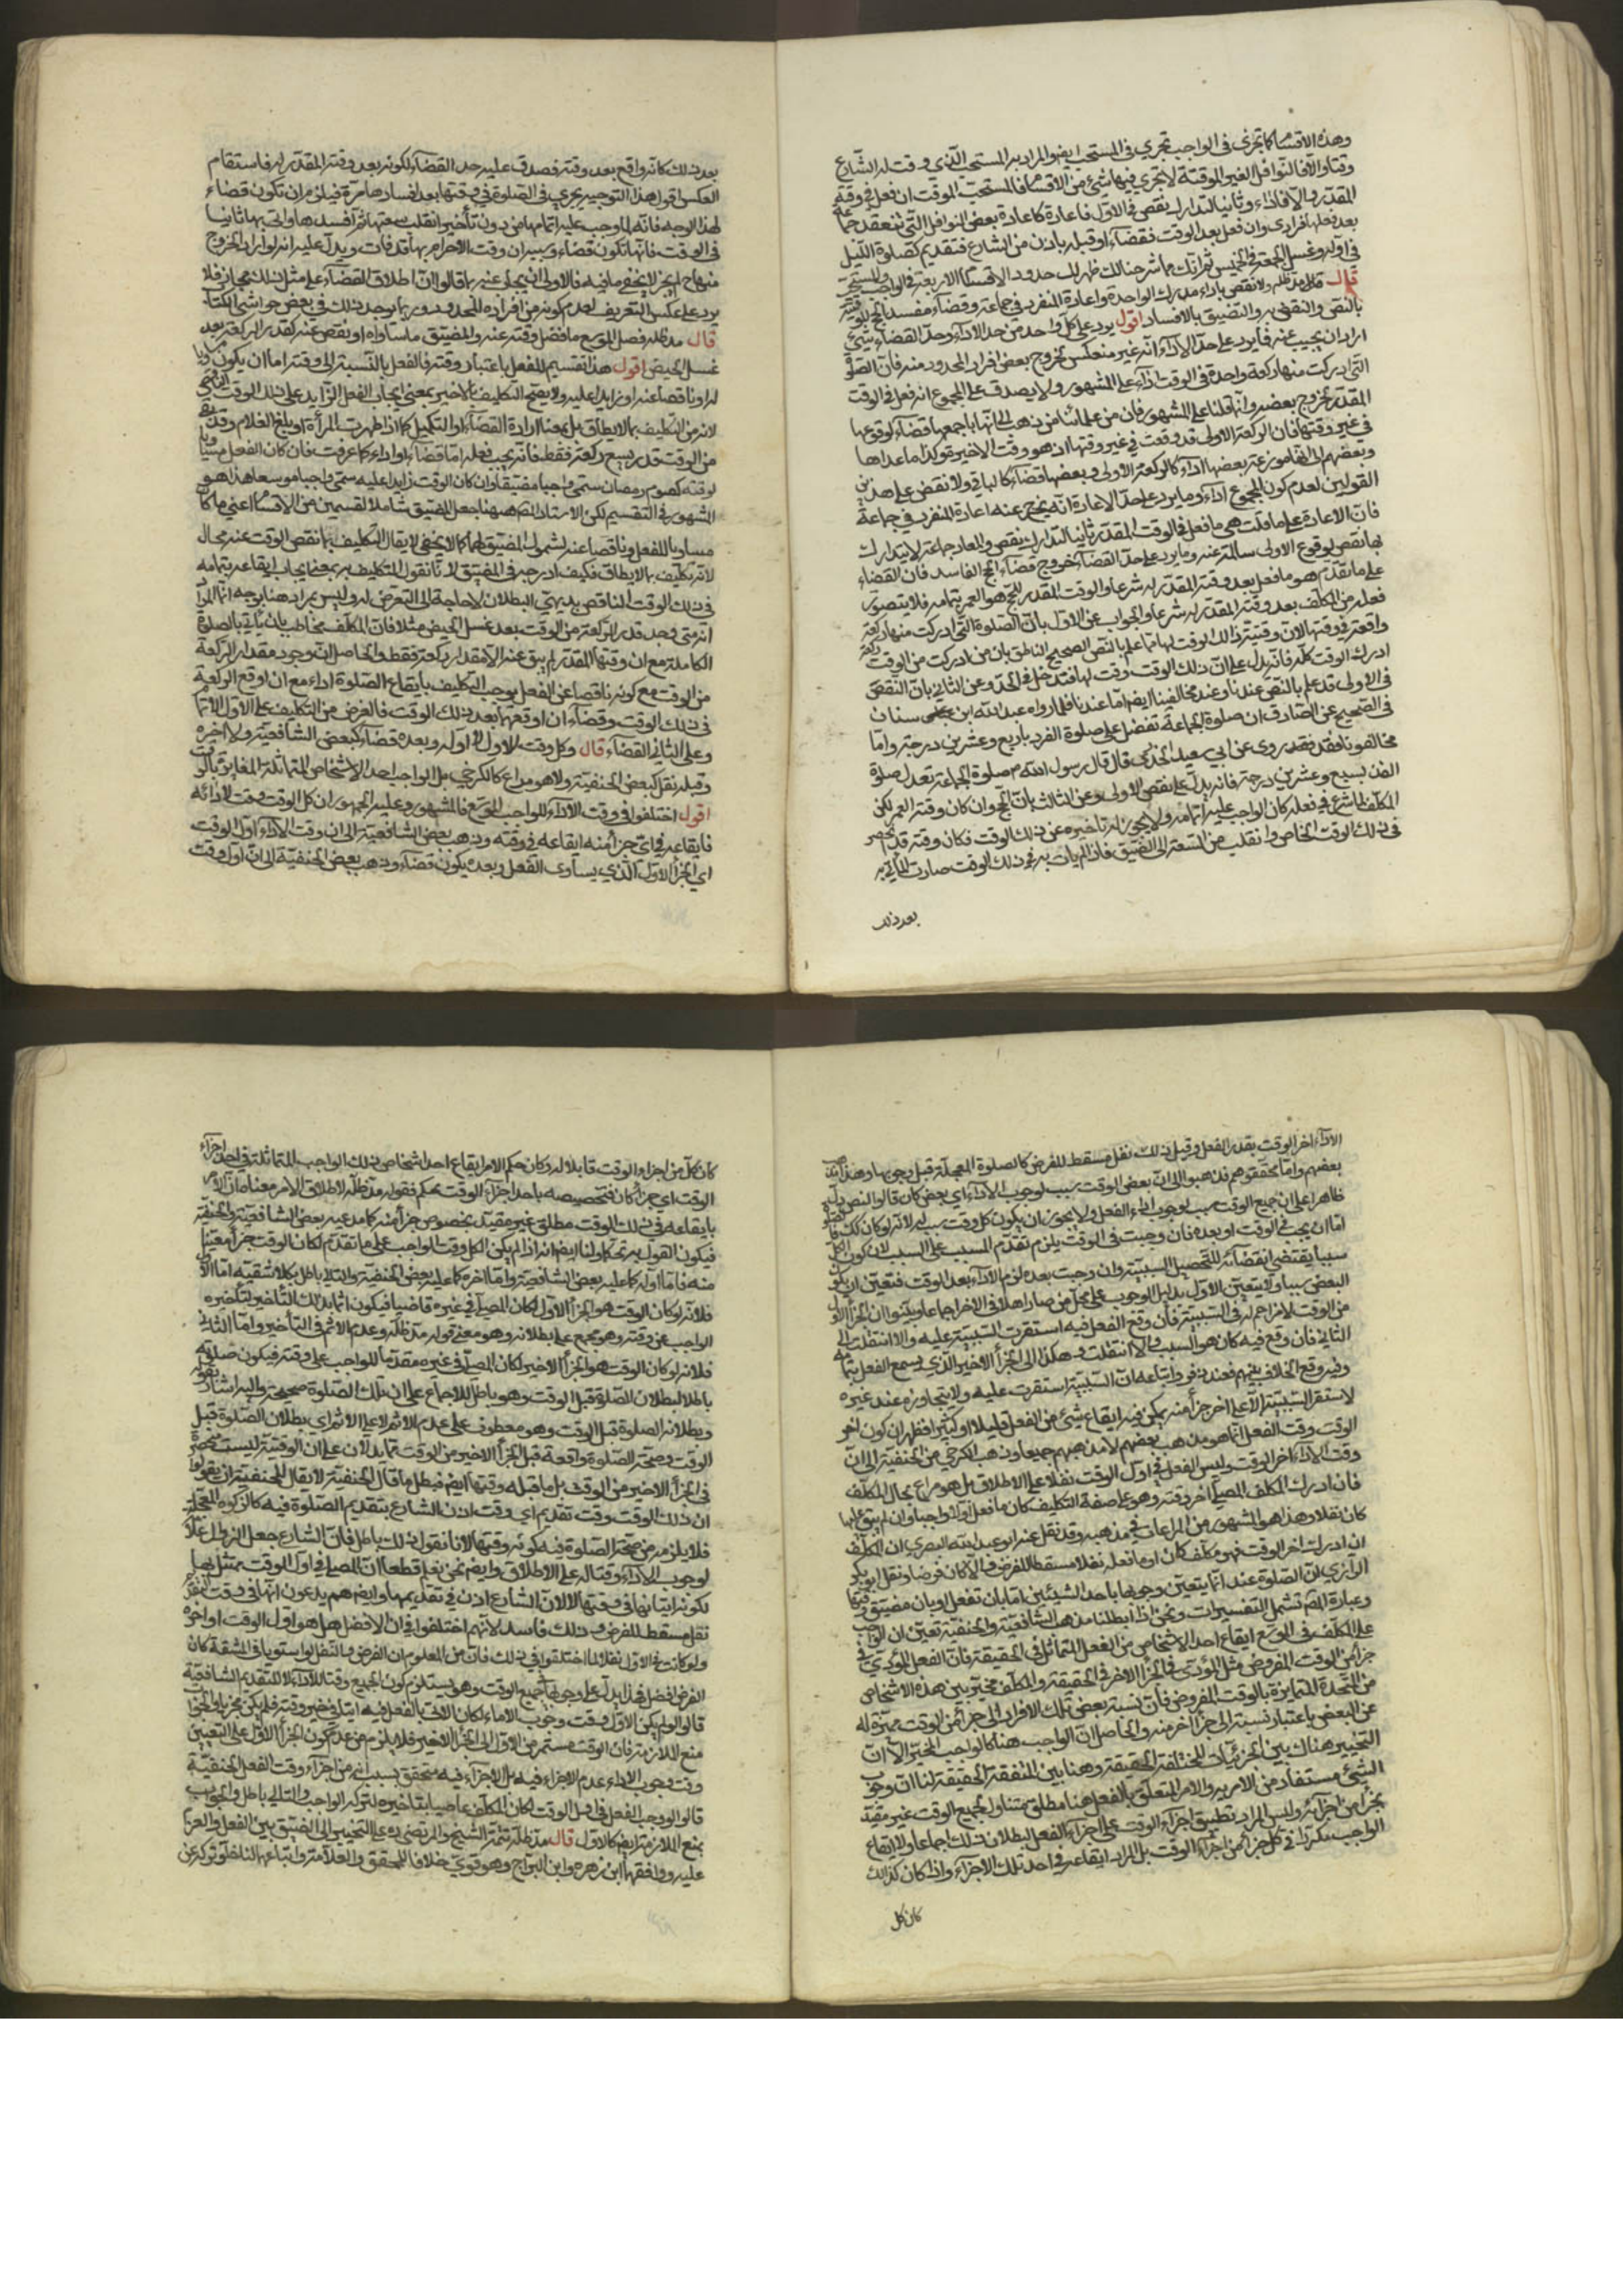 وهذه الاقسام كما تجري في الواجب تجري في المستحب ايضا والمراد به المستحب الذي وقت له الشارع
وقتا والا فالنوافل الغير الموقتة لا تجري فيها شئ من الاقسام فالمستحب الموقت ان فعل في وقته
المقدر والا فاداء وثانيا لتدارك نقص في الاول فاعادة كاعادة بعض النوافل التي تنعقد جماعة
بعد فعلها فرادى وان فعل بعد الوقت فقضاء او قبله باذن من الشارع فتقديم كصلوة الليل
في اوله وغسل الجمعة في الخميس ثم انك مما شرحنا لك ظهر لك حدود الاقسام الاربعة في الواجب والمستحب
قال مد ظله ولا نقض باداء مدرك الواحدة واعادة المنفرد في جماعة وقضاء مفسد الحج للتوقيت
بالنص والنقص به والتضيق بالافساد اقول يرد على كل واحد من حد الاداء وحد القضاء شئ
اراد ان يجيب عنه فما يرد على حد الاداء انه غير منعكس لخروج بعض افراد المحدود منه فان الصلوة
التي ادركت منها ركعة واحدة في الوقت اداء على المشهور ولا يصدق على المجموع انه فعل في الوقت
المقدر لخروج بعضه وانما قلنا على المشهور فان من علمائنا من ذهب الى انها باجمعها قضاء لوقوعها
في غير وقتها فان الركعة الاولى قد وقعت في غير وقتها اذ هو وقت الاخيرة وكذا ما عداها
وبعضهم الى انها موزعة بعضها اداء كالركعة الاولى وبعضها قضاء كالباقي ولا نقض على هذين
القولين لعدم كون المجموع اداء وما يرد على حد الاعادة انه يخرج عنه اعادة المنفرد في جماعة
فان الاعادة على ما قلت هي ما فعل في الوقت المقدر ثانيا لتدارك نقص والمعاد جماعة لا يتدارك
بها نقص لوقوع الاولى سالمة عنه وما يرد على حد القضاء خروج قضاء الحج الفاسد فان القضاء
على ما تقدم هو ما فعل بعد وقته المقدر له شرعا والوقت المقدر للحج هو العمر بتمامه فلا يتصور
فعله من المكلف بعد وقته المقدر له شرعا والجواب عن الاول بان الصلوة التي ادركت منها ركعة
واقعة في وقتها لان وقتية ذلك الوقت لها مما علم بالنص الصحيح الناطق بان من ادرك من الوقت ركعة
ادرك الوقت كله فانه يدل على ان ذلك الوقت وقت لها فتدخل في الحد وعن الثاني بان النقص
في الاولى قد علم بالنص عندنا وعند مخالفينا ايضا اما عندنا فلما رواه عبد الله ابن سنان
في الصحيح عن الصادق ان صلوة الجماعة تفضل على صلوة الفرد باربع وعشرين درجة واما
مخالفونا فقد روى عن ابي سعيد الخدري قال قال رسول الله ص صلوة الجماعة تعدل صلوة
الفذ بسبع وعشرين درجة فانه يدل على نقص الاولى وعن الثالث بان الحج وان كان وقته العمر لكن
المكلف لما شرع في فعله كان الواجب عليه اتمامه ولا يجوز له تاخيره عن ذلك الوقت فكان وقته قد انحصر
في ذلك الوقت الخاص وانقلب من السعة الى الضيق فاذا لم يات به في ذلك الوقت صارت الماتي به
بعد ذلك
بعد ذلك كانه واقع بعد وقته فصدق عليه حد القضاء لكونه بعد وقته المقدر له فاستقام
العكس اقول هذا التوجيه يجري في الصلوة في وقتها بعد افسادها مرة فيلزم ان تكون قضاء
لهذا الوجه فانه لما وجب عليه اتمامها من دون تأخير انقلبت سعتها ثم افسدها واتى بها ثانيا
في الوقت فانها تكون قضاء وقت الاحرام بها قد فات ويدل عليه انه لو اراد الخروج
منها ح لم يجز لا يخفى ما فيه فالاولى ان يجاب عنه بما قالوا ان اطلاق القضاء على مثل ذلك مجاز فلا
يرد على عكس التعريف لعدم كونه من افراد المحدود وربما يوجد ذلك في بعض حواشي الكتاب
قال مد ظله فصل الموسع ما فضل وقته عنه والمضيق ما ساواه او نقص عنه كقدر الركعة بعد
غسل الحيض اقول هذا تقسيم للفعل باعتبار وقته فالفعل بالنسبة الى وقته اما ان يكون مساويا
له او ناقصا عنه او زايدا عليه ولا يصح التكليف بالاخير بمعنى ايجاب الفعل الزايد على ذلك الوقت
لانه من التكليف بما لا يطاق بل بمعنى ارادة القضاء او التكميل كما اذا طهرت المرأة او بلغ الغلام وقد بقي
من الوقت قدر يسع ركعة فقط فانه يجب فعله اما قضاء او اداء كما عرفت فان كان الفعل مساويا
لوقته كصوم رمضان سمي واجبا مضيقا وان كان الوقت زايدا عليه سمي واجبا موسعا هذا هو
المشهور في التقسيم لكن الاستاد ههنا جعل المضيق شاملا لقسمين من الاقسام اعني ما كان
مساويا للفعل وناقصا عنه لشمول المضيق لهما كما لا يخفى لا يقال التكليف بما نقص الوقت عنه محال
لانه تكليف بما لا يطاق فكيف ادرجه في المضيق لانا نقول التكليف به بمعنى ايجاب ايقاعه بتمامه
في ذلك الوقت الناقص بديهي البطلان لا حاجة الى التعرض له وليس بمراد هنا بوجه انما المراد
انه متى وجد قدر الركعة من الوقت بعد غسل الحيض مثلا فان المكلف مخاطب بان يأتي بالصلوة
الكاملة مع ان وقتها المقدر لم يبق عنه الا مقدار ركعة فقط والحاصل ان وجود مقدار الركعة
من الوقت مع كونه ناقصا عن الفعل يوجب التكليف بايقاع الصلوة اداء مع ان اوقع الركعة
في ذلك الوقت وقضاء ان اوقعها بعد ذلك الوقت فالغرض من التكليف على الاول الاتمام
وعلى الثاني القضاء قال وكل وقت الاول لا اوله وبعده قضاء كبعض الشافعية ولا اخره
وقبله نفل كبعض الحنفية ولا هو مراع كالكرخي بل الواجب احد الاشخاص المتماثلة المغايرة بالوقت
اقول اختلفوا في وقت الاداء للواجب الموسع فالمشهور وعليه الجمهور ان كل الوقت وقت لادائه
فايقاعه في اي جزء منه ايقاعه في وقته وذهب بعض الشافعية الى ان وقت الاداء اول الوقت
اي الجزء الاول الذي يساوى الفعل وبعده يكون قضاء وذهب بعض الحنفية الى ان اول وقت
الاداء اخر الوقت بقدر الفعل وقبل ذلك نفل مسقط للفرض كالصلوة المعجلة قبل وجوبها وهذا
بعضهم واما محققوهم فذهبوا الى ان بعض الوقت سبب لوجوب الاداء اي بعض كان قالوا النص يدل
ظاهرا على ان جميع الوقت سبب لوجوب اداء الفعل ولا يجوز ان يكون كل وقت سببا له لانه لو كان كذلك
اما ان يجب في الوقت او بعده فان وجبت في الوقت يلزم تقدم المسبب على السبب لان كون الكل
سببا يقتضي انقضائه لتحصيل السببية وان وجبت بعده لزم الاداء بعد الوقت فتعين ان يكون
البعض سببا ولا يتعين الاول بدليل الوجوب على من صار اهلا في الاخر اجماعا وبينوا ان الجزء الاول
من الوقت لا مزاحم له في السببية فان وقع الفعل فيه استقرت السببية عليه والا انتقلت الى
الثاني فان وقع فيه كان هو السبب والا انتقلت وهكذا الى الجزء الاخير الذي يسع الفعل بتمامه
وفيه وقع الخلاف بينهم فعند زفر واتباعه ان السببية استقرت عليه ولا يتجاوزه عند غيره
لا تستقر السببية الا على اخر جزء منه يمكن فيه ايقاع شئ من الفعل قليلا او كثيرا فظهر ان كون اخر
الوقت وقت الفعل انما هو مذهب بعضهم لا مذهبهم جميعا وذهب الكرخي من الحنفية الى ان
وقت الاداء اخر الوقت وليس الفعل في اول الوقت نفلا على الاطلاق بل هو مراع بحال المكلف
فان ادرك المكلف المصلي اخر وقته وهو على صفة التكليف كان ما فعل اولا واجبا وان لم يبق عليها
كان نفلا وهذا هو المشهور من المراعات في مذهبه وقد نقل عنه ابو عبد الله البصري ان المكلف
ان ادرك اخر الوقت فهو مكلف كان ما فعله نفلا مسقطا للفرض والا كان فرضا ونقل ابو بكر
الرازي ان الصلوة عنده انما يتعين وجوبها باحد الشيئين اما بان تفعل او بان تضيق وقتها
وعبارة المصم تشمل التفسيرات ونحن اذا ابطلنا مذهب الشافعية والحنفية تعين ان الواجب
على المكلف في الموسع ايقاع احد الاشخاص من الفعل المتماثل في الحقيقة فان الفعل المؤدى في
جزء من الوقت المفروض مثل المؤدى في الجزء الاخر في الحقيقة والمكلف مخير بين هذه الاشخاص
المتحدة المتمايزة بالوقت المفروض فان نسبة بعض تلك الافراد الى جزء من الوقت مميزة له
عن البعض باعتبار نسبته الى جزء اخر منه والحاصل ان الواجب هنا كالواجب المخير الا ان
التخيير هناك بين الجزئيات المختلفة الحقيقة وهنا بين المتفقة الحقيقة لنا ان وجوب
الشئ مستفاد من الامر به والامر المتعلق بالفعل هنا مطلق متناول لجميع الوقت غير مقيد
بجزء من اجزائه وليس المراد تطبيق اجزاء الوقت على اجزاء الفعل لبطلان ذلك اجماعا ولا ايقاع
الواجب مكررا في كل جزء من اجزاء الوقت بل المراد ايقاعه في احد تلك الاجزاء واذا كان كذلك
كان كل
كان كل من اجزاء الوقت قابلا له وكان حكم الامر ايقاع احد اشخاص ذلك الواجب المتماثلة في احد اجزاء
الوقت اي جزء كان فتخصيصه باحد اجزاء الوقت تحكم فقوله مد ظله لاطلاق الامر معناه ان الامر
بايقاعه في ذلك الوقت مطلق غير مقيد بخصوص جزء منه كما مدعيه بعض الشافعية والحنفية
فيكون القول به تحكما ولنا ايضا انه اذا لم يكن الكل وقت الواجب على ما تقدم لكان الوقت جزء معينا
منه فاما اوله كما عليه بعض الشافعية واما اخره كما عليه بعض الحنفية والتالي باطل بكلا شقيه اما الاول
فلانه لو كان الوقت هو الجزء الاول لكان المصلي في غيره قاضيا فيكون اثما بذلك التاخير لتاخيره
الواجب عن وقته وهو مجمع على بطلانه وهو معنى قوله مد ظله وعدم الاثم في التأخير واما الثاني
فلانه لو كان الوقت هو الجزء الاخير لكان المصلي في غيره مقدما للواجب على وقته فيكون صلوته
باطلا لبطلان الصلوة قبل الوقت وهو باطل للاجماع على ان تلك الصلوة صحيحة واليه اشار بقوله
وبطلانه الصلوة قبل الوقت وهو معطوف على عدم الاثم لا على الاثم اي بطلان الصلوة قبل
الوقت وصحة الصلوة واقعة قبل الجزء الاخير من الوقت مما يدلان على ان الوقتية ليست منحصرة
في الجزء الاخير من الوقت بل ما قبله وقتها ايضا فبطل ما قال الحنفية لا يقال للحنفية ان يقولوا
ان ذلك الوقت وقت تقديم اي وقت اذن الشارع بتقديم الصلوة فيه كالزكوة المعجلة
فلا يلزم من صحة الصلوة فيه كونه وقتها لانا نقول ذلك باطل فان الشارع جعل الزوال مثلا
لوجوب الاداء وقتا له على الاطلاق وايضا نحن نعلم قطعا ان المصلي في اول الوقت ممتثل بها
لكونه اتيا بها في وقتها لا لان الشارع اذن في تقديمها وايضا هم يدعون انها في وقت التقديم
نفل مسقط للفرض وذلك فاسد لانهم اختلفوا في ان الافضل هل هو اول الوقت او اخره
ولو كانت في الاول نفلا لما اختلفوا في ذلك فان من المعلوم ان الفرض والنفل لو استويا في المشقة كان
الفرض افضل فهذا يدل على وجوبها في جميع الوقت وهو يستلزم كون الجميع وقتا للاداء لا للتقديم الشافعية
قالوا لو لم يكن الاول وقت وجوب الاداء لكان الاتي بالفعل فيه اتيا في غير وقته فلم يكن مجزيا والجواب
منع الملازمة فان الوقت مستمر من الاول الى الجزء الاخير فلا يلزم من عدم كون الجزء الاول على التعيين
وقت وجوب الاداء عدم الاجزاء فيه بل الاجزاء فيه متحقق بسبب انه من اجزاء وقت الفعل الحنفية
قالوا لو وجب الفعل في اول الوقت لكان المكلف عاصيا بتاخيره لتركه الواجب والتالي باطل والجواب
بمنع الملازمة ايضا كالاول قال مد ظله تتمة الشيخ والمرتضى رة على التخيير الى الضيق بين الفعل والعزم
عليه ووافقهما ابن زهره وابن البراج وهو قوي خلافا للمحقق والعلامة واتباعهما لنا خلو تركه عن